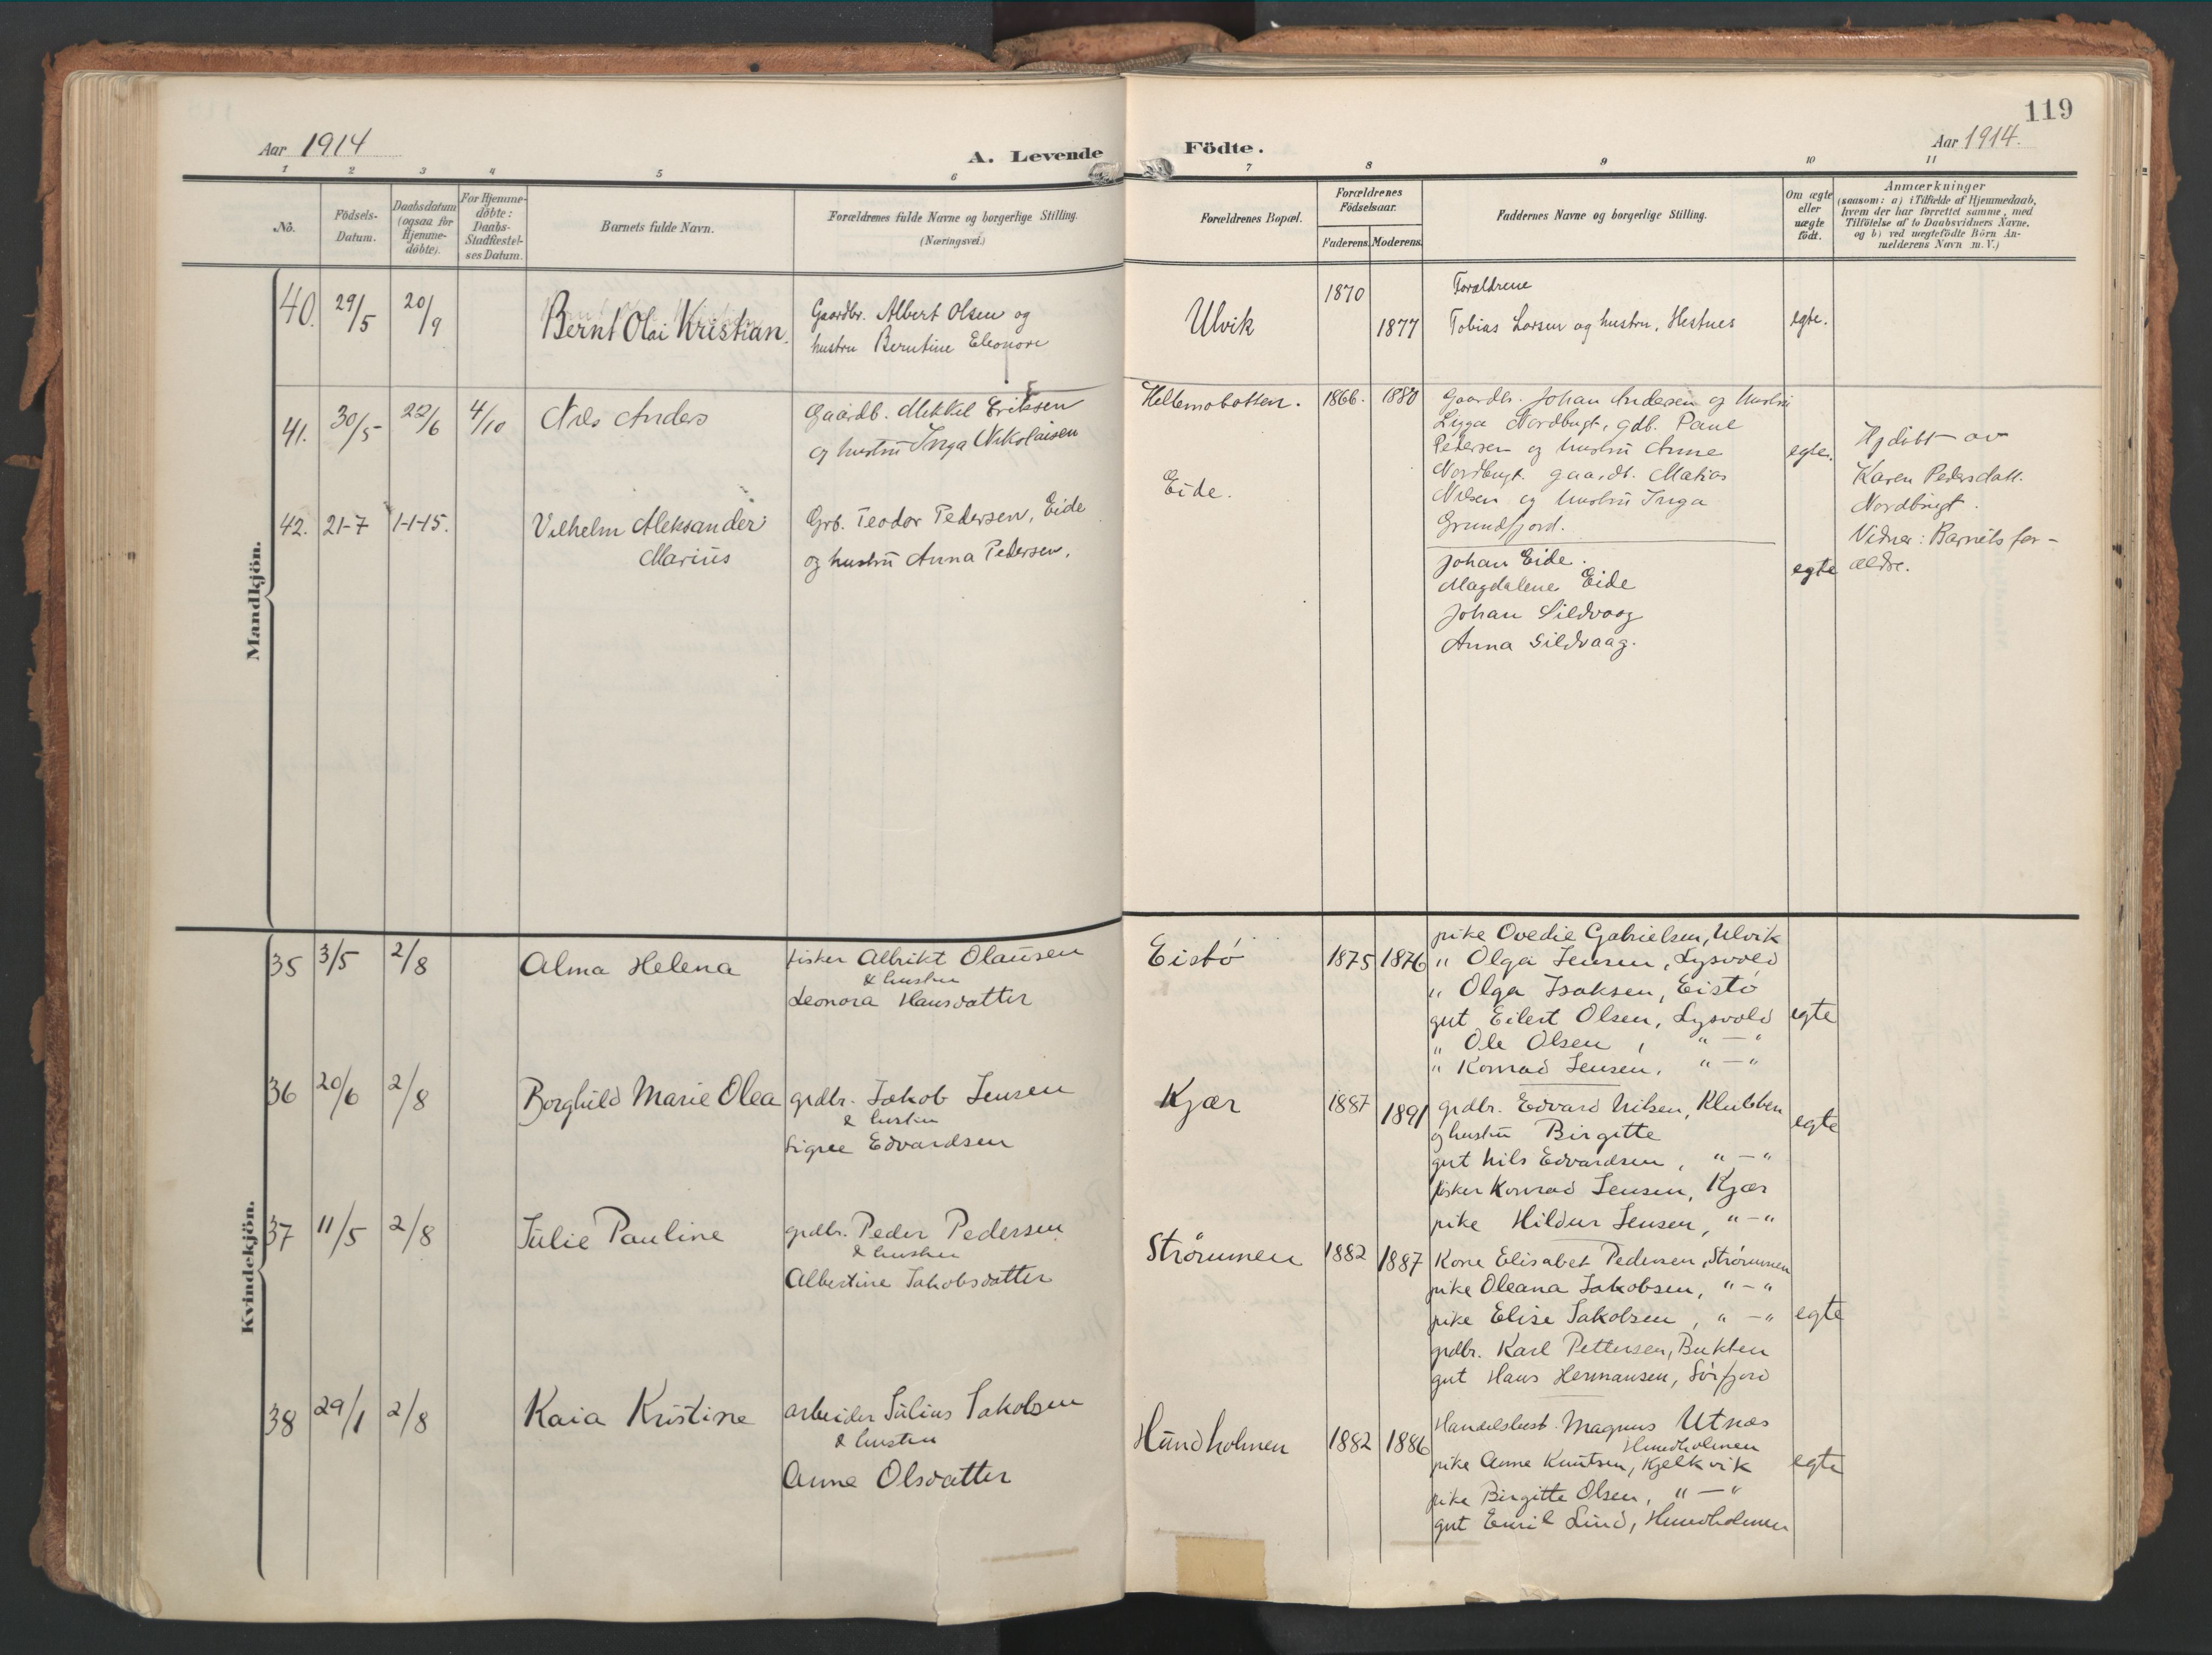 119
Aar 1914
A. Levende Födte.
Aar 1914.
1 2 3 4 5 6 7 8 9 10 11
No.
Födsels-
Datum.
Daabsdatum
(ogsaa for
Hjemme-
döbte).
For Hjemme-
döbte:
Daabs-
Stadfæstel-
ses Datum.
Barnets fulde Navn.
Forældrenes fulde Navne og borgerlige Stilling.
(Næringsvei.)
Forældrenes Bopæl.
Forældrenes
Födselsaar.
Faderens. Moderens.
Faddernes Navne og borgerlige Stilling.
Om ægte
eller
uægte
födt.
Anmærkninger
(saasom: a) i Tilfælde af Hjemmedaab,
hvem der har forrettet samme, med
Tilföielse af to Daabsvidners Navne,
og b) ved uægtefödte Börn An-
melderens Navn m. V.)
Mandkjön.
40. 29/5 20/9
Bernt Olai Kristian.
Gaardbr. Albert Olsen og
hustru Berntine Eleonore
Ulvik
1870
1877
Forældrene
Tobias Larsen og hustru, Hestnes
egte.
41. 30/5 22/6 4/10
Nils Anders
Gaardb. Mikkel Eriksen
og hustru Inga Nikolaisen
Hellemobotten.
1866. 1880
Gaardbr. Johan Andersen og hustru
Nordbugt, gdb. Paul
Pedersen og hustru Anne
Nordbugt. gaardb. Matias
Nilsen og hustru Inga
Grundfjord.
egte.
Hjdøbt av
Karen Pedersdatt.
Nordbugt.
Vidner: Barnets for-
ældre.
42. 21-7 1-1-15.
Vilhelm Aleksander
Marius
Grb. Teodor Pedersen, Eide
og hustru Anna Pedersen.
Eide.
Johan Eide.
Magdalene Eide
Johan Sildvaag
Anna Sildvaag.
egte
Kvindekjön.
35 3/5 2/8
Alma Helena
fisker Albrikt Olausen
& hustru
Leonora Hansdatter
Eistö
1875 1876
pike Ovedie Gabrielsen, Ulvik
" Olga Jensen, Lysvold
" Olga Isaksen, Eistö
gut Eilert Olsen, Lysvold
" Ole Olsen, " — "
" Konrad Jensen, " — "
egte
36 20/6 2/8
Borghild Marie Olea
grdbr. Jakob Jensen
& hustru
Signe Edvardsen
Kjær
1887 1891
grdbr. Edvard Nilsen, Klubben
og hustru Birgitte
gut Nils Edvardsen, " — "
fisker Konrad Jensen, Kjær
pike Hildur Jensen, " — "
egte
37 11/5 2/8
Julie Pauline
grdbr. Peder Pedersen
& hustru
Albertine Jakobsdatter
Strömmen
1882 1887
Kone Elisabet Pedersen, Strömmen
pike Oleana Jakobsen, " — "
pike Elise Jakobsen, " — "
grdbr. Karl Pettersen, Bukten
gut Hans Hermansen, Sörfjord
egte
38 29/1 2/8
Kaia Kristine
arbeider Julius Jakobsen
& hustru
Anne Olsdatter
Hundholmen
1882 1886
Handelsbest. Magnus Utnæs
Hundholmen
pike Anne Knutsen, Kjelkvik
pike Birgitte Olsen, " — "
gut Emil Lind, Hundholmen
egte